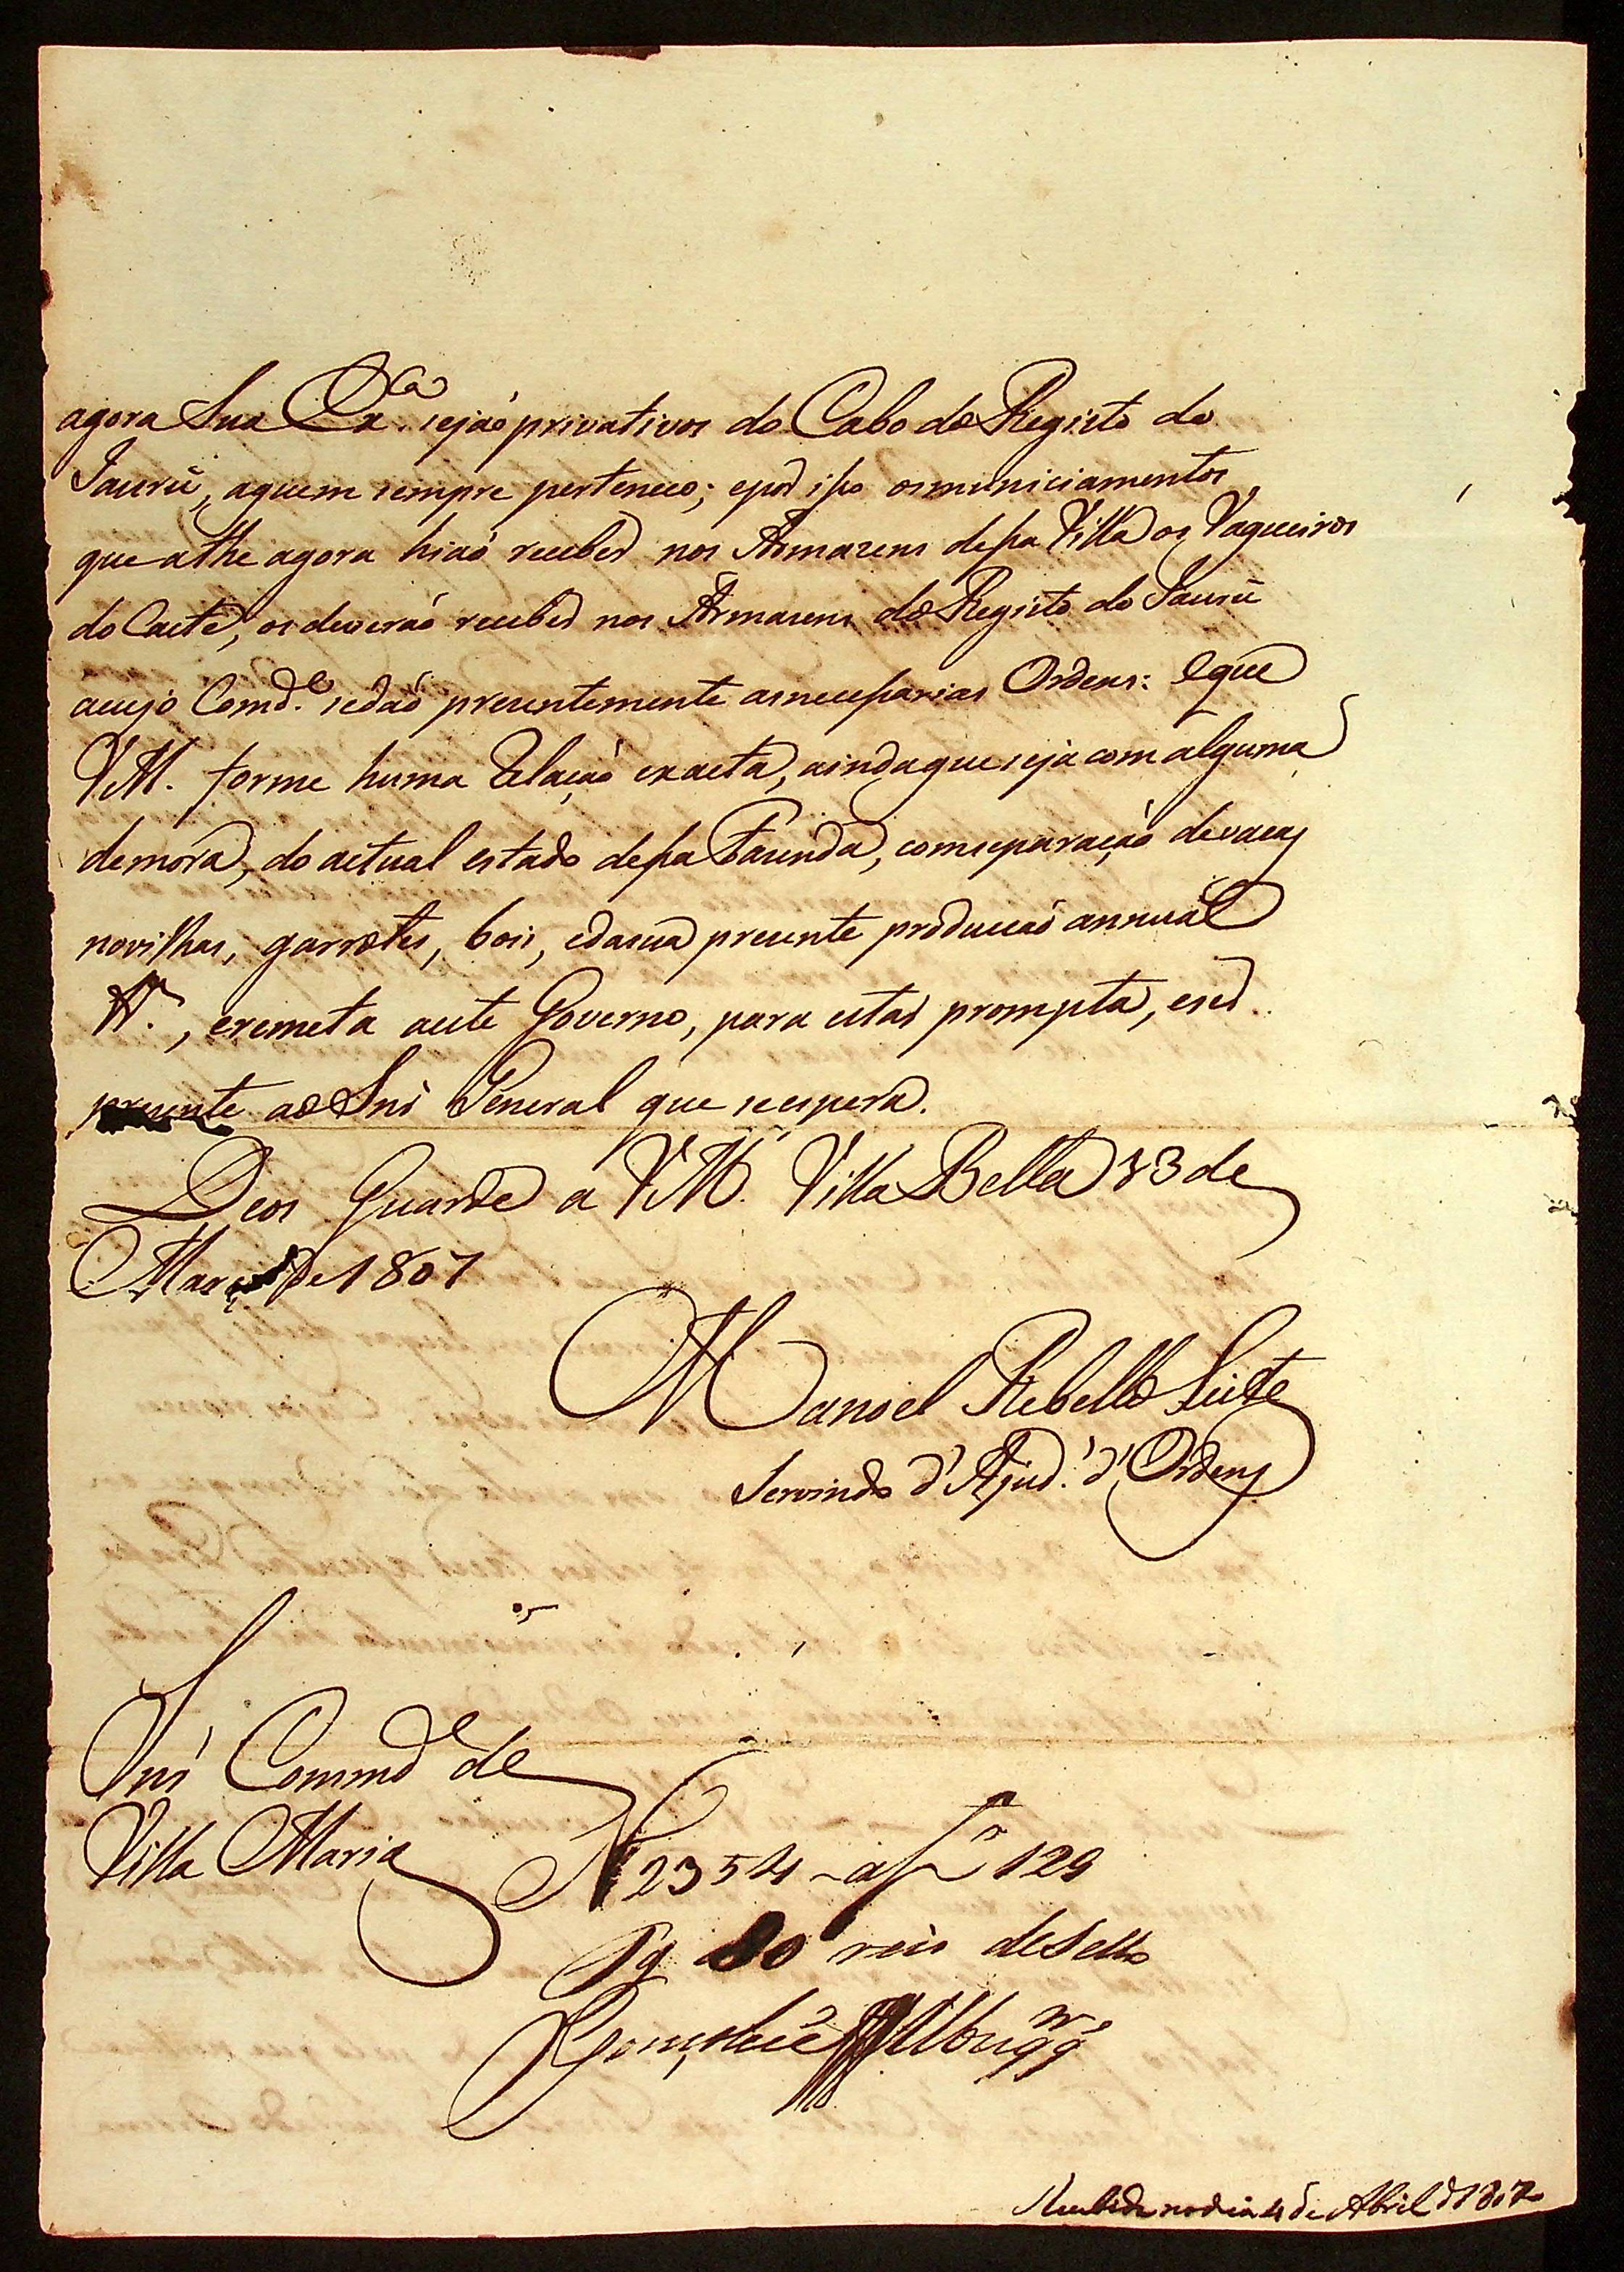 agora Sua Ex.ca sejaõ privativos do Cabo do Registo do
Jaurú, aquem sempre perteneceo; epor isso osmuniciamentos
que athe agora hiaõ receber nos Armazens dessa Villa os Vaqueiros
do Caeté, os deveraõ receber nos Armazens do Registo do Jaurú
acujo Comd.e sedaõ prezentemente asnecessarias Ordens: Eque
VM. forme huma Relaçaõ exacta, aindaque seja com alguma
demora, do actual estado dessa Fazenda, comseparaçaõ devacas
novilhas, garrotes, bois, edasua prezente producçaõ annual
&., eremeta aeste Governo, para estar prompta, eser
prezente ao Snr General que seespera.
Deos Guarde a VM. Villa Bella 23 de
Março de 1807
Manoel Rebello Leite
Servindo d'Ajud.' d'Ordens
Snr Commd.e de
Villa Maria
N 2354 a f 129
Pg 80 reis deSello
Recebida nodia 4 de Abril d 1807